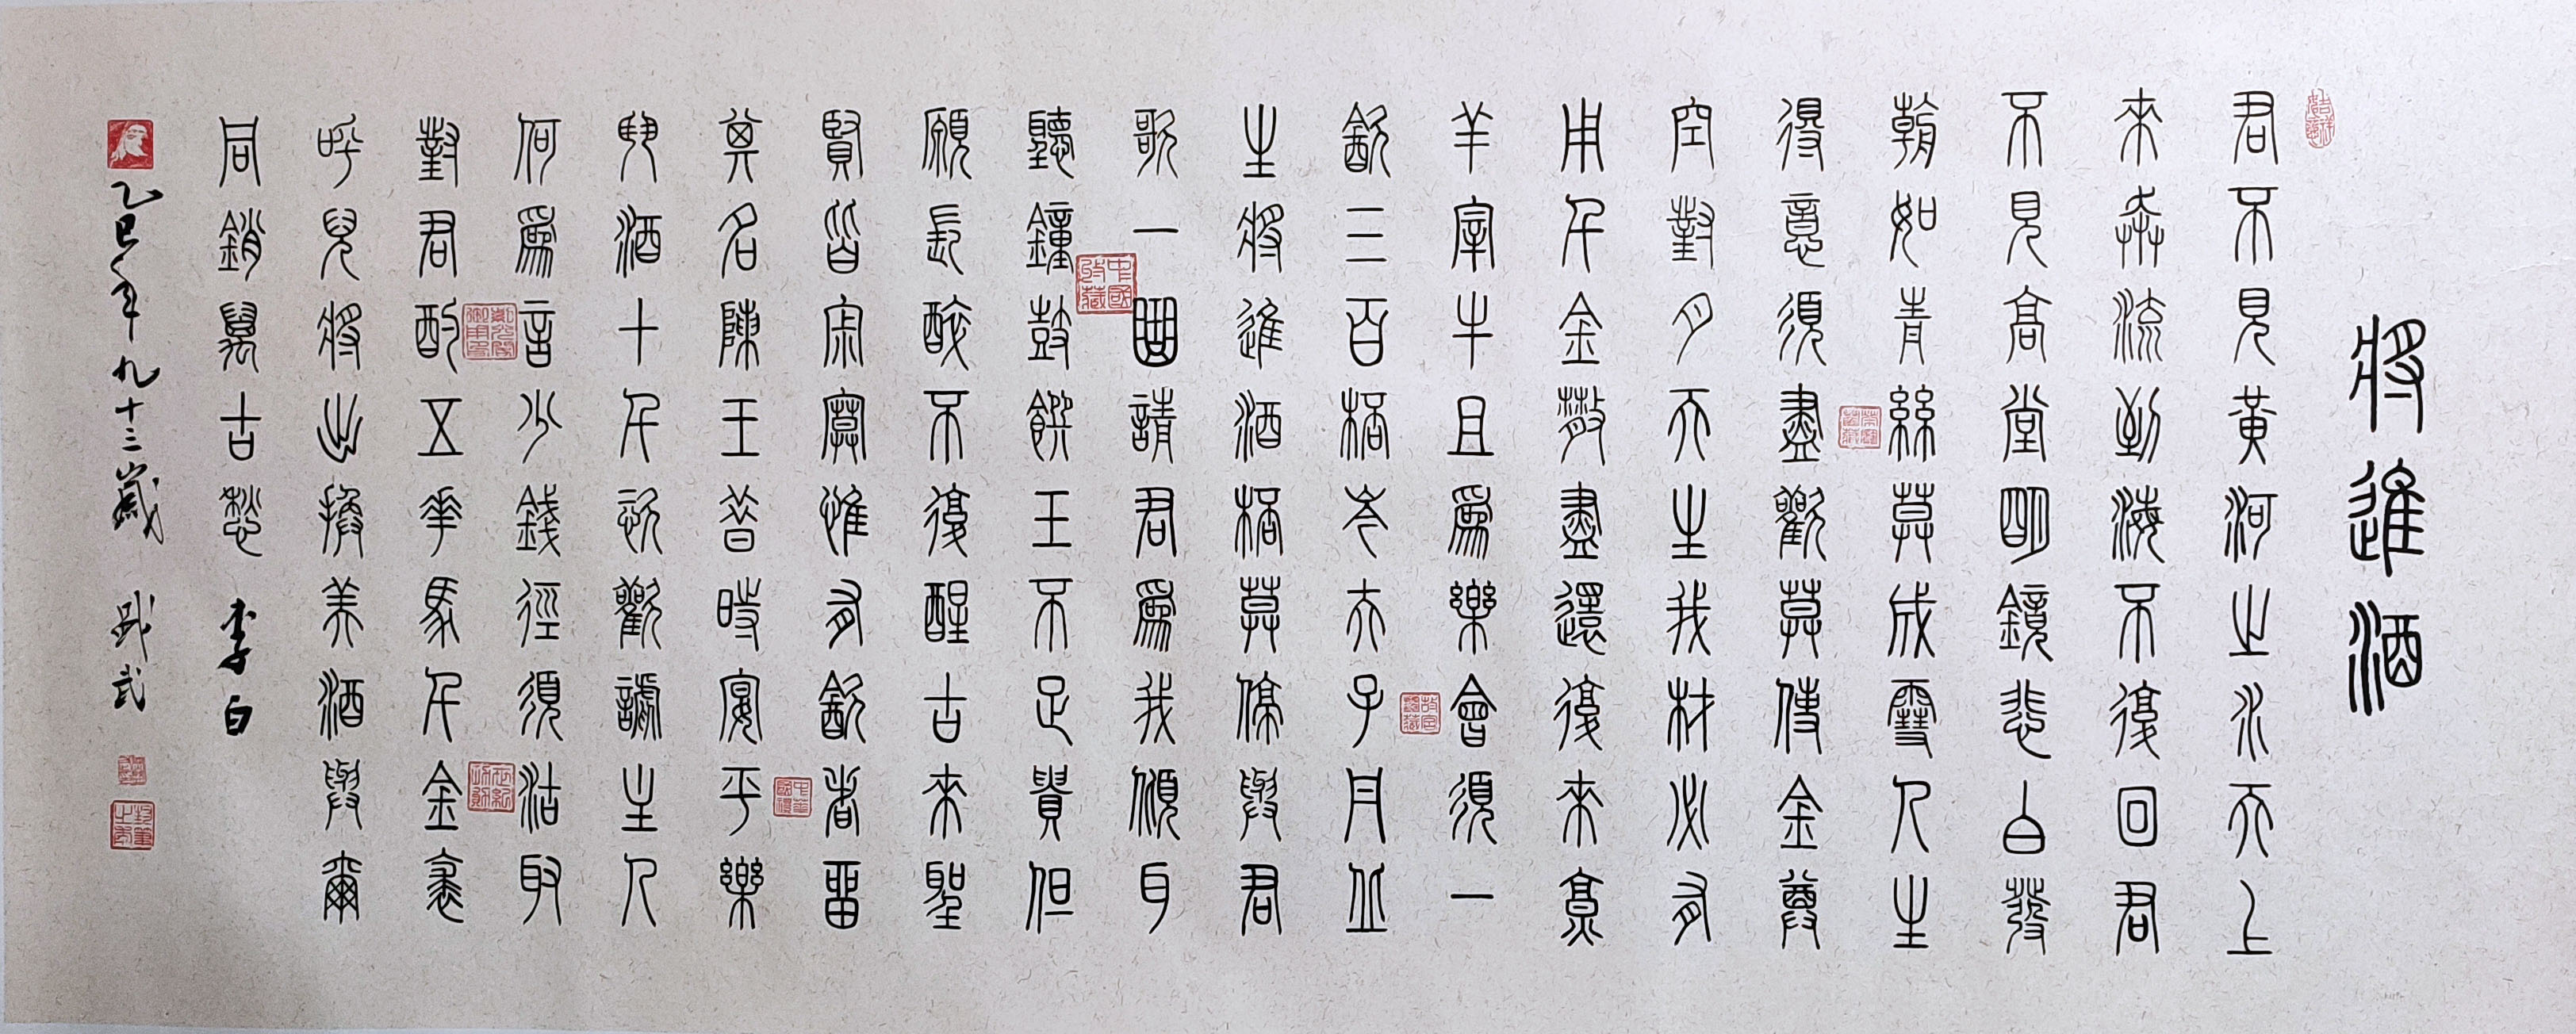 將進酒
君不見黃河之水天上
來奔流到海不復回君
不見高堂明鏡悲白發
朝如青絲莫成雪人生
得意須盡歡莫使金尊
空對月天生我材必有
用千金散盡還復來烹
羊宰牛且爲樂會須一
飲三百桮岑夫子丹丘
生將進酒桮莫停與君
歌一曲請君爲我傾耳
聽鐘鼓饌玉不足貴但
願長醉不復醒古來聖
賢皆寂寞惟有飲者留
其名陳王昔時宴平樂
斗酒十千恣歡謔主人
何爲言少錢徑須沽取
對君酌五花馬千金裘
呼兒將出換美酒與爾
同銷萬古愁 李白
乙巳年九十三歲